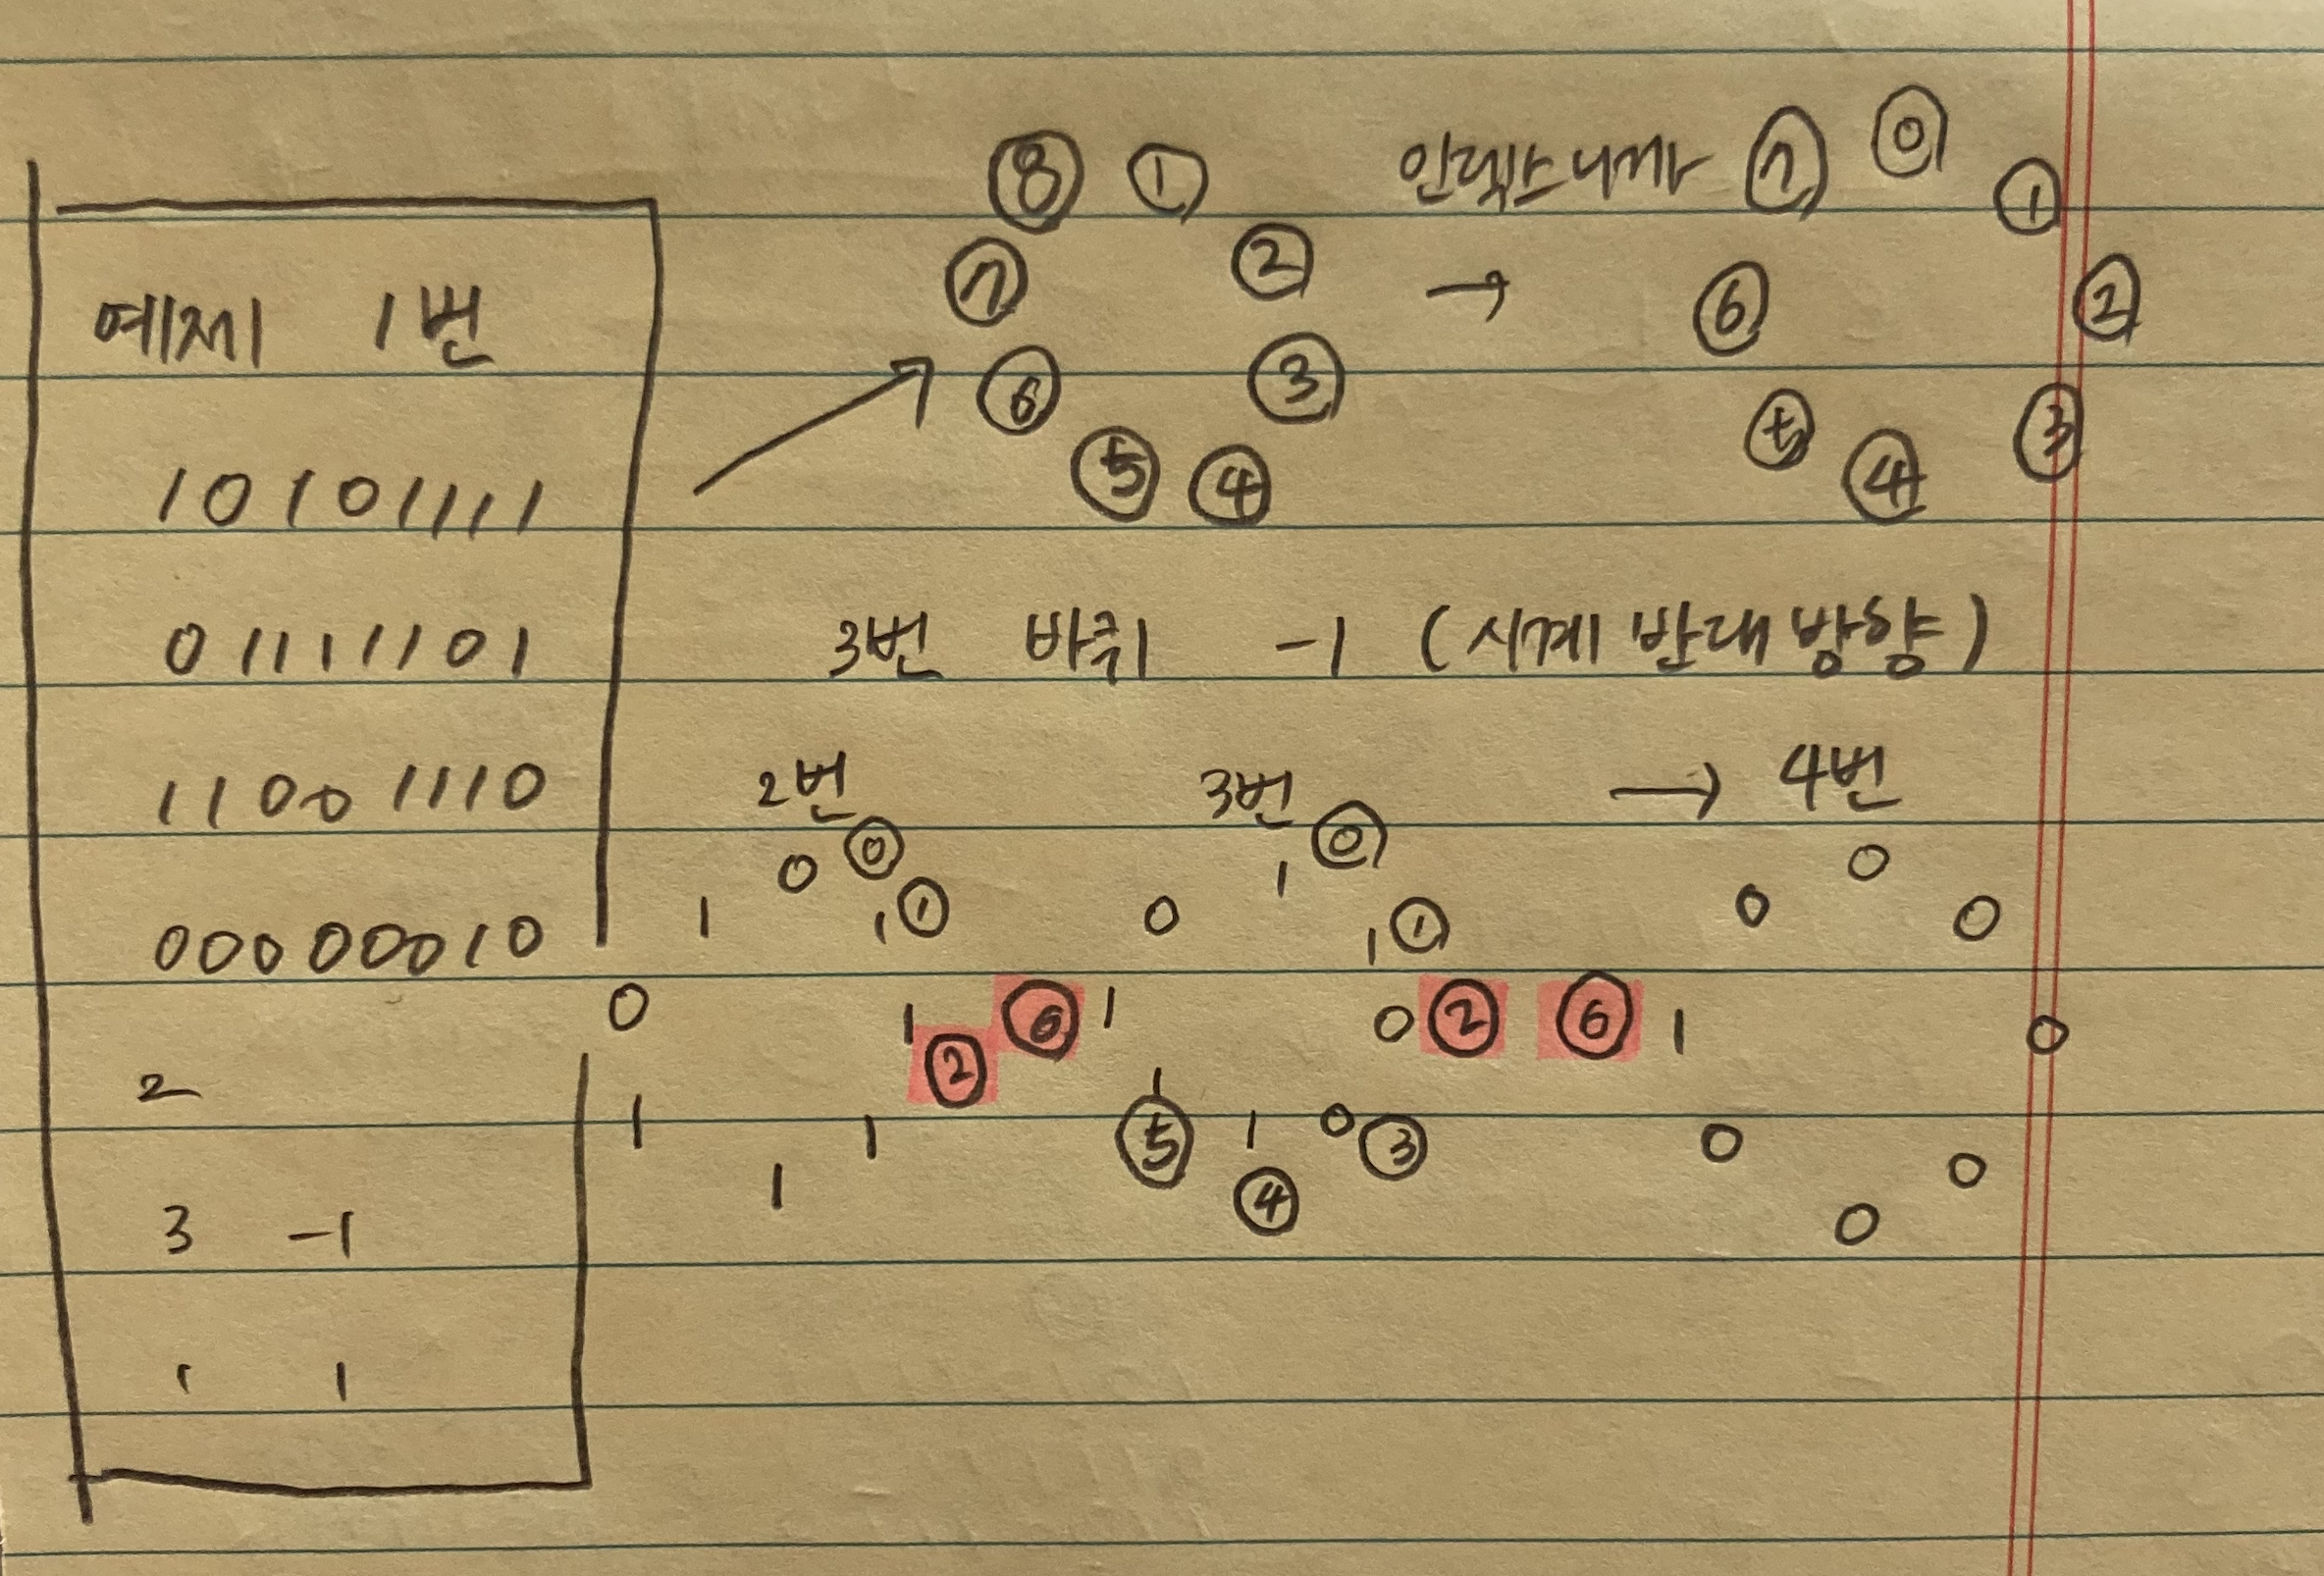 예제 1번
10101111
01111101
11001110
00000010
2
3 -1
1 1
⑧ ①
⑦ ②
⑥ ③
⑤ ④
인덱스니까 ⑦ ⓪ ①
→ ⑥ ②
⑤ ④ ③
3번 바퀴 -1 (시계 반대 방향)
2번 3번 → 4번
0 ⓪ 1 ⓪ 0
1 1 ① 0 1 ① 0 0
0 1 ⑥ 1 0 ② ⑥ 1 0
②
1 1 1 ⑤ 1 0 ③ 0 0
1 ④ 0